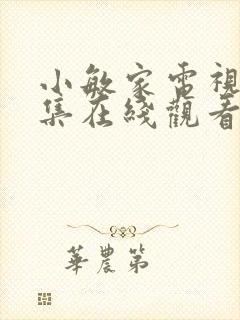 小敏家電視
集在綫觀看
華農第